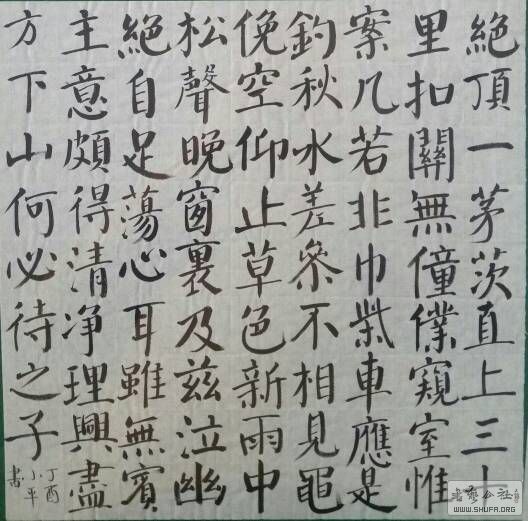 絶頂一茅茨直上三十
里扣關無僮僕窺室惟
案几若非巾柴車應是
釣秋水差叅不相見黽
俛空仰止草色新雨中
松聲晚窗裏及茲泣幽
絶自足蕩心耳雖無賓
主意頗得清净理興盡
方下山何必待之子
丁酉
小平
書
書藝公社
WWW.SHUFA.ORG